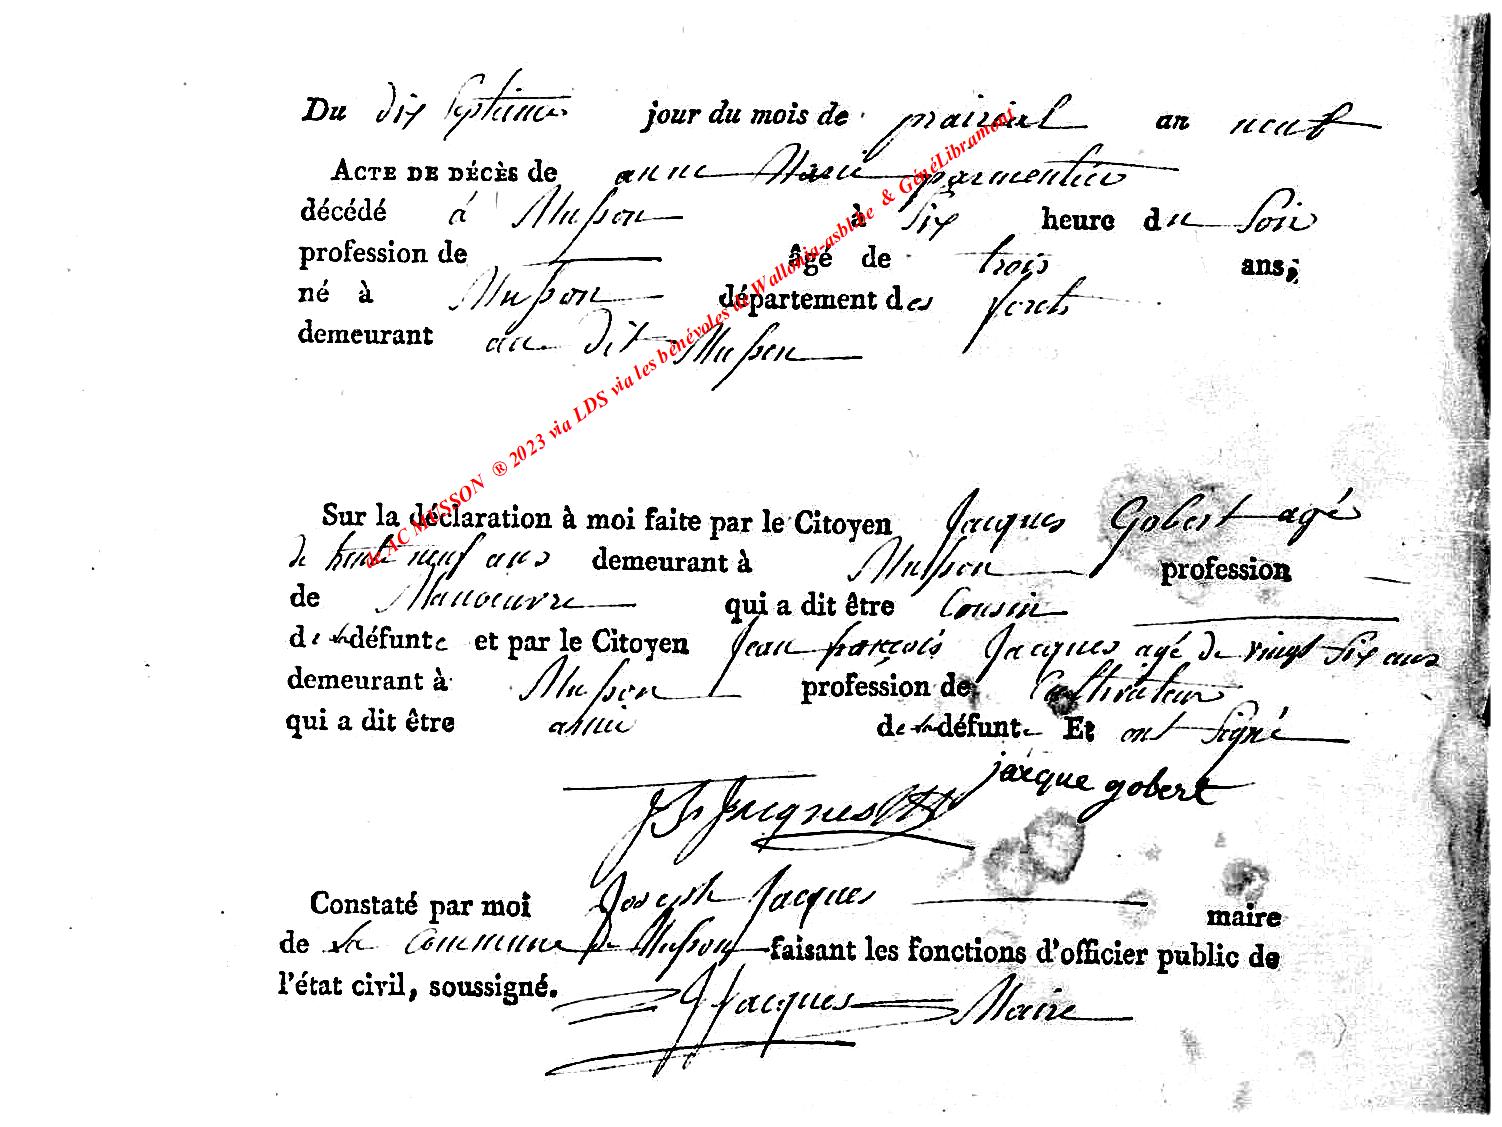 Du dix septieme jour du mois de prairial an neuf
ACTE DE DÉCÈS de anne Marie parmentier
décédé á Musson à six heure du soir
profession de âgé de trois ans,
né à Musson département des forets
demeurant au dit Musson
Sur la déclaration à moi faite par le Citoyen Jacques Gobert agé
de trente neuf ans demeurant à Musson profession
de Manoeuvre qui a dit être Cousin
de la défunte et par le Citoyen Jean françois Jacques agé de vingt six ans
demeurant à Musson profession de Cultivateur
qui a dit être ami de la défunte Et ont signé
jacque gobert
Jacques
Constaté par moi Joseph Jacques maire
de la commune de Musson faisant les fonctions d'officier public de
l'état civil, soussigné.
J Jacques Maire
AC MUSSON ® 2023 via LDS via les bénévoles de Wallonia-asbl.be & GénéLibramont